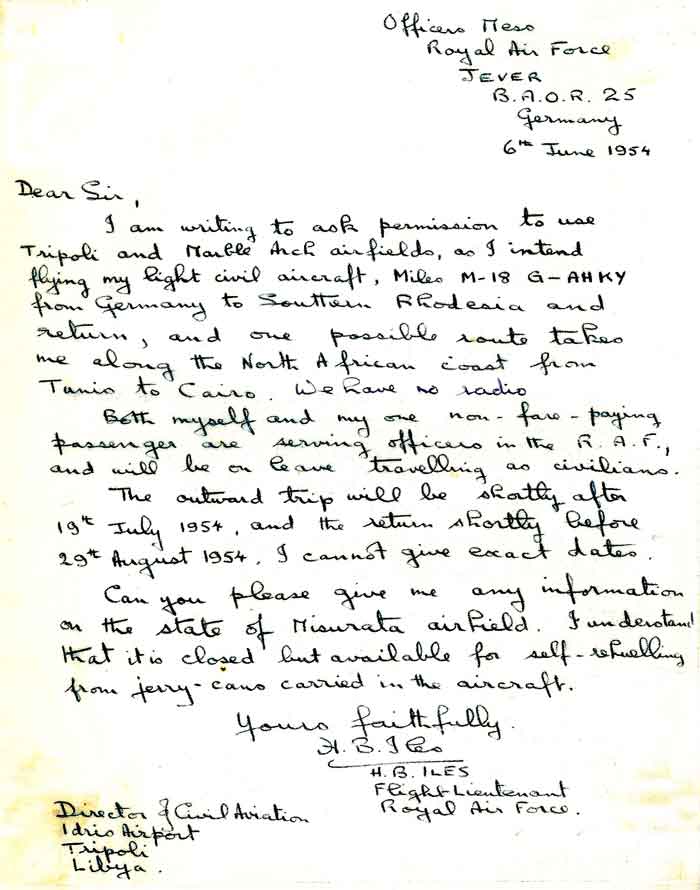 Officers Mess
Royal Air Force
JEVER
B.A.O.R. 25
Germany
6th June 1954
Dear Sir,
I am writing to ask permission to use
Tripoli and Marble Arch airfields, as I intend
flying my light civil aircraft, Miles M-18 G-AHKY
from Germany to Southern Rhodesia and
return, and one possible route takes
me along the North African coast from
Tunis to Cairo. We have no radio
Both myself and my one non-fare-paying
passenger are serving officers in the R.A.F.,
and will be on leave travelling as civilians.
The outward trip will be shortly after
19th July 1954, and the return shortly before
29th August 1954. I cannot give exact dates.
Can you please give me any information
on the state of Misurata airfield. I understand
that it is closed but available for self-refuelling
from jerry-cans carried in the aircraft.
Yours faithfully.
H.B.Iles
H.B. ILES
Flight Lieutenant
Royal Air Force.
Director of Civil Aviation
Idris Airport
Tripoli
Libya.